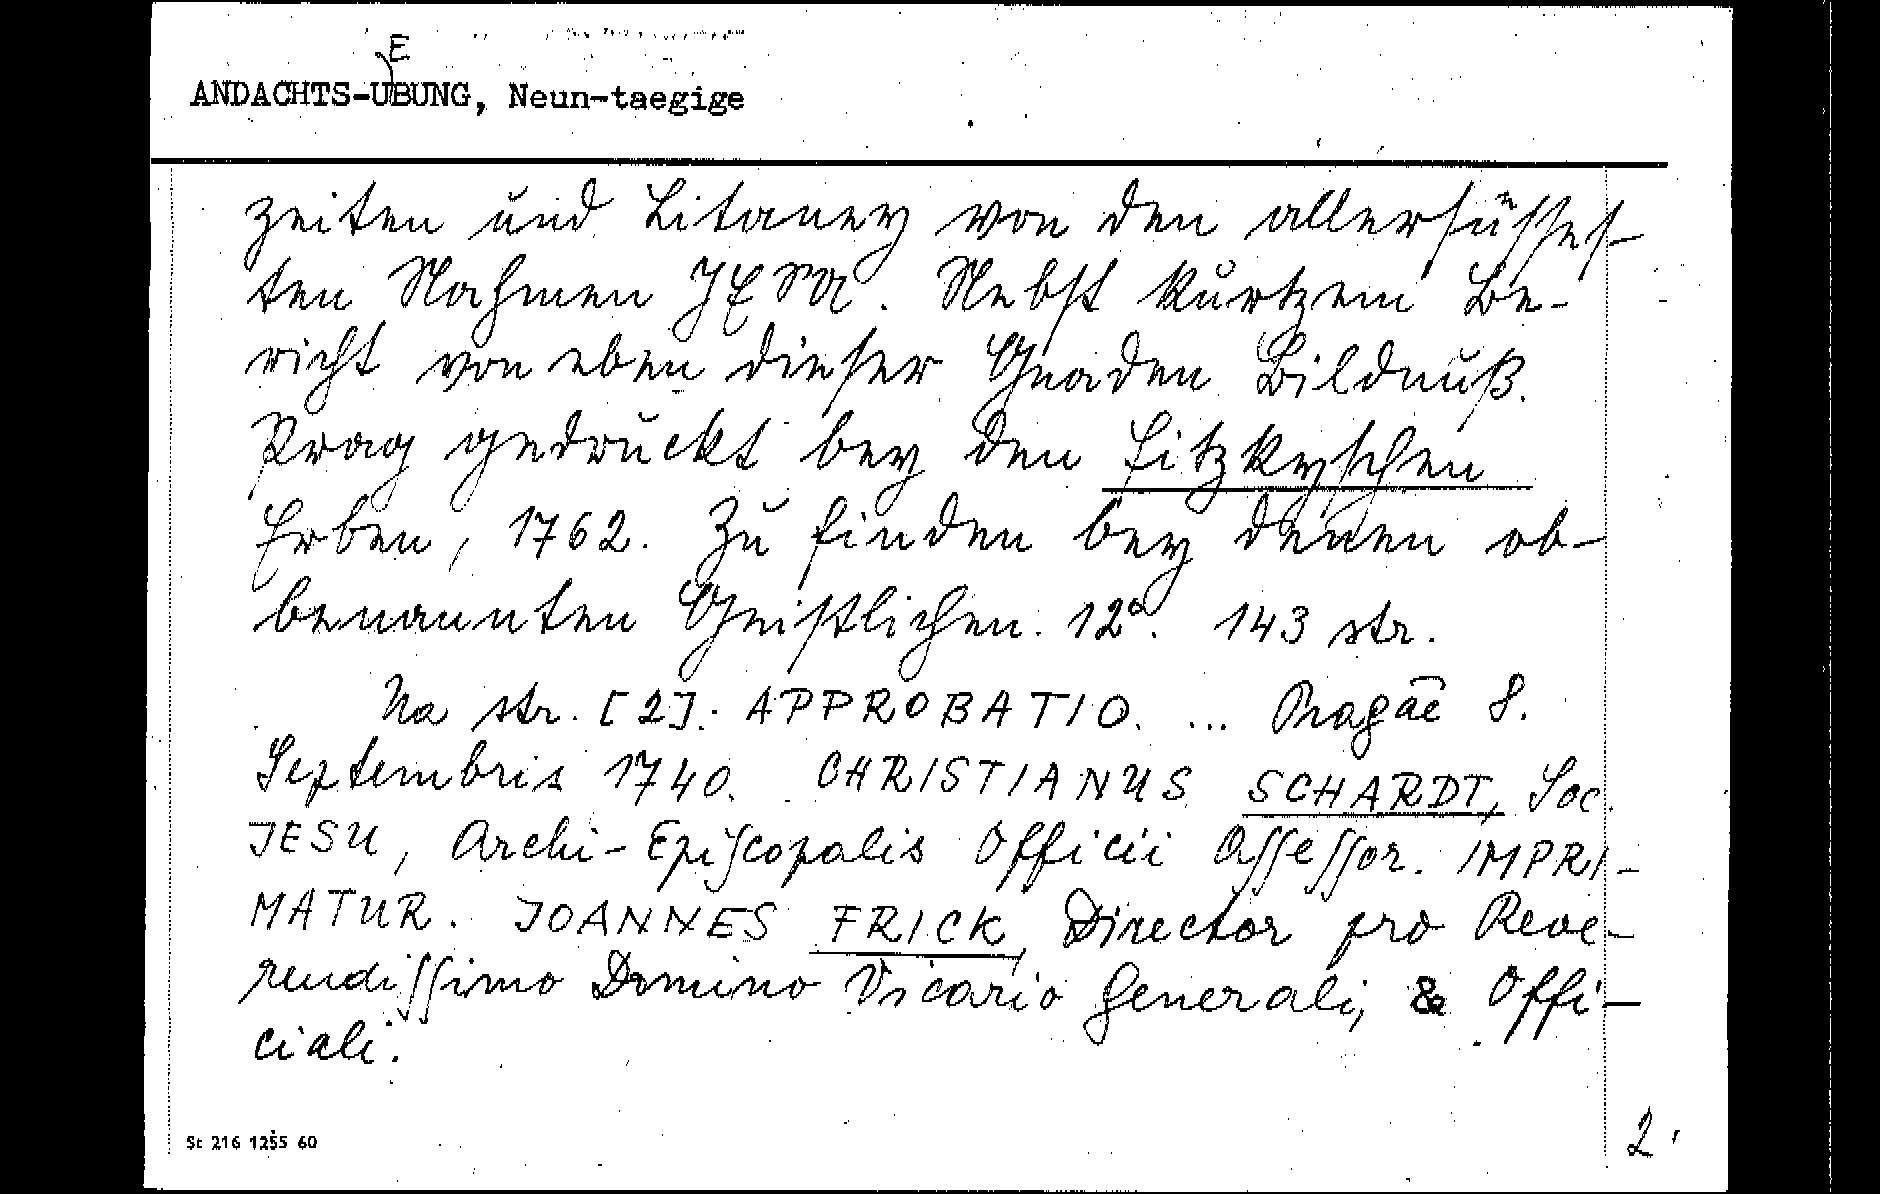 ANDACHTS-UEBUNG, Neun-taegige
zeiten und Litaney von den allersüsses-
ten Nahmen JESU. Nebst kurtzem Be-
richt von eben dieser Gnaden Bildnuß.
Prag gedruckt bey den Fitzkyschen
Erben, 1762. Zu finden bey denen ob-
benannten Geistlichen. 12°. 143 str.
Na str. [2]: APPROBATIO. ... Pragae 8.
Septembris 1740. CHRISTIANUS SCHARDT, Soc.
JESU, Archi-Epiſcopalis Officii Aſſeſſor. IMPRI-
MATUR. JOANNES FRICK, Director pro Reve-
rendiſſimo Domino Vicario Generali, & Offi-
ciali.
St 216 1255 60
2